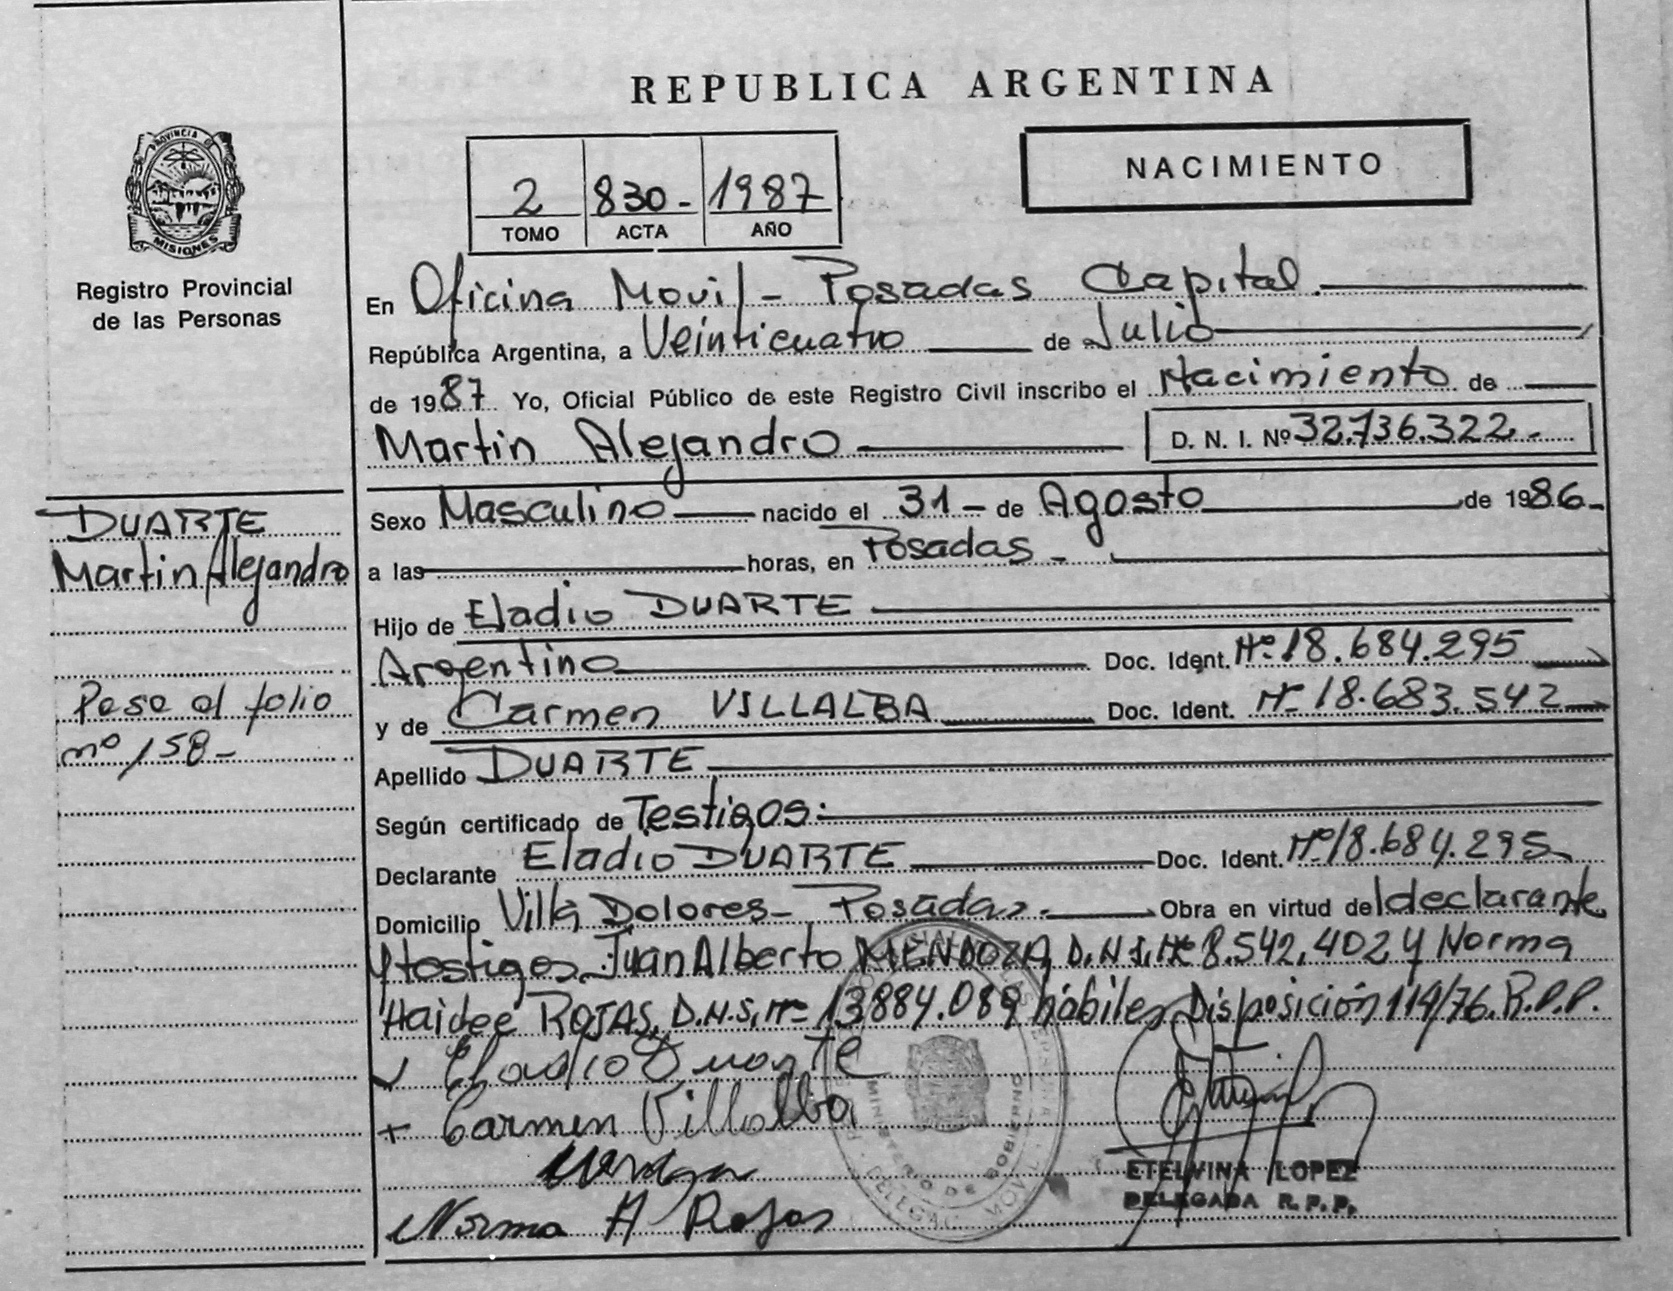 REPUBLICA ARGENTINA
PROVINCIA
MISIONES
Registro Provincial
de las Personas
NACIMIENTO
2 830- 1987
TOMO ACTA AÑO
En Oficina Movil - Posadas Capital.
República Argentina, a Veinticuatro de Julio
de 1987 Yo, Oficial Público de este Registro Civil inscribo el Nacimiento de
Martin Alejandro D. N. I. Nº 32.736.322.-
DUARTE
Martin Alejandro
Sexo Masculino nacido el 31 - de Agosto de 1986-
a las horas, en Posadas -
Hijo de Eladio DUARTE
Argentino Doc. Ident. Nº 18.684.295
y de Carmen VILLALBA Doc. Ident. Nº 18.683.542
Pase al folio
nº 158-
Apellido DUARTE
Según certificado de Testigos:
Declarante Eladio DUARTE Doc. Ident. Nº 18.684.295
Domicilio Villa Dolores - Posadas.- Obra en virtud del declarante
y testigos Juan Alberto MENDOZA D.N.I. Nº 8.542.402 y Norma
Haidee ROJAS, D.N.I. Nº 13884.089 hábiles Disposición 119/76.R.P.P.
Eladio Duarte
+ Carmen Villalba
Norma H Rojas
MINISTERIO DE GOBIERNO
ETELVINA LOPEZ
DELEGADA R.P.P.